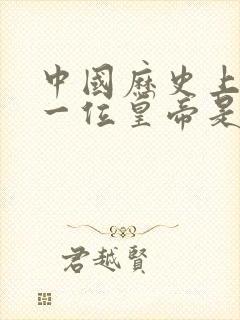 中國歷史上
一位皇帝是
君越賢